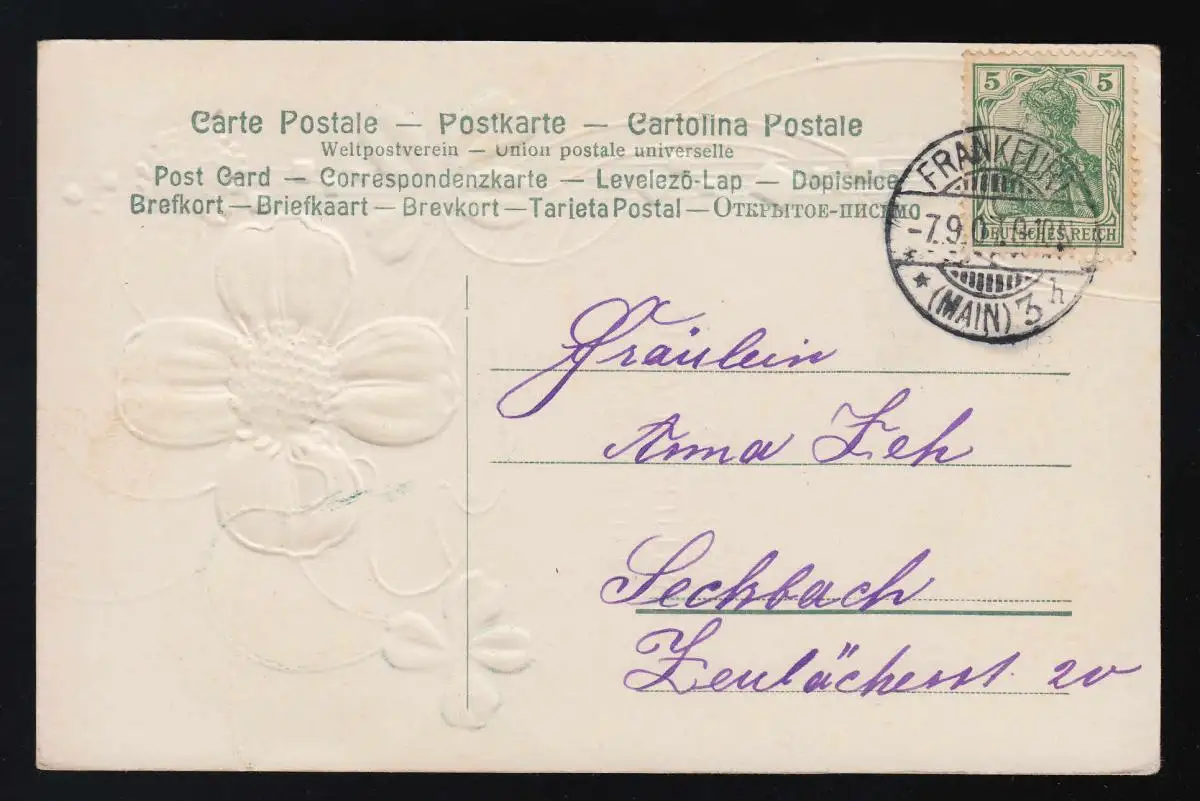 Carte Postale — Postkarte — Cartolina Postale
Weltpostverein — Union postale universelle
Post Card — Correspondenzkarte — Levelező-Lap — Dopisnice
Brefkort — Briefkaart — Brevkort — Tarjeta Postal — Открытое-письмо
5 5
DEUTSCHES REICH
FRANKFURT
-7.9.0
(MAIN) 3h
Fräulein
Anna Zeh
Seckbach
20